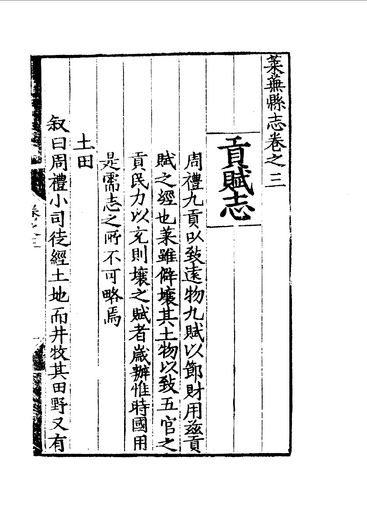 萊蕪縣志卷之三
貢賦志
周禮九貢以致遠物九賦以節財用兹貢
賦之經也萊雖僻壤其土物以致五官之
貢民力以充則壤之賦者歲辦惟時國用
是需志之所不可略焉
土田
叙曰周禮小司徒經土地而井牧其田野又有
卷之三